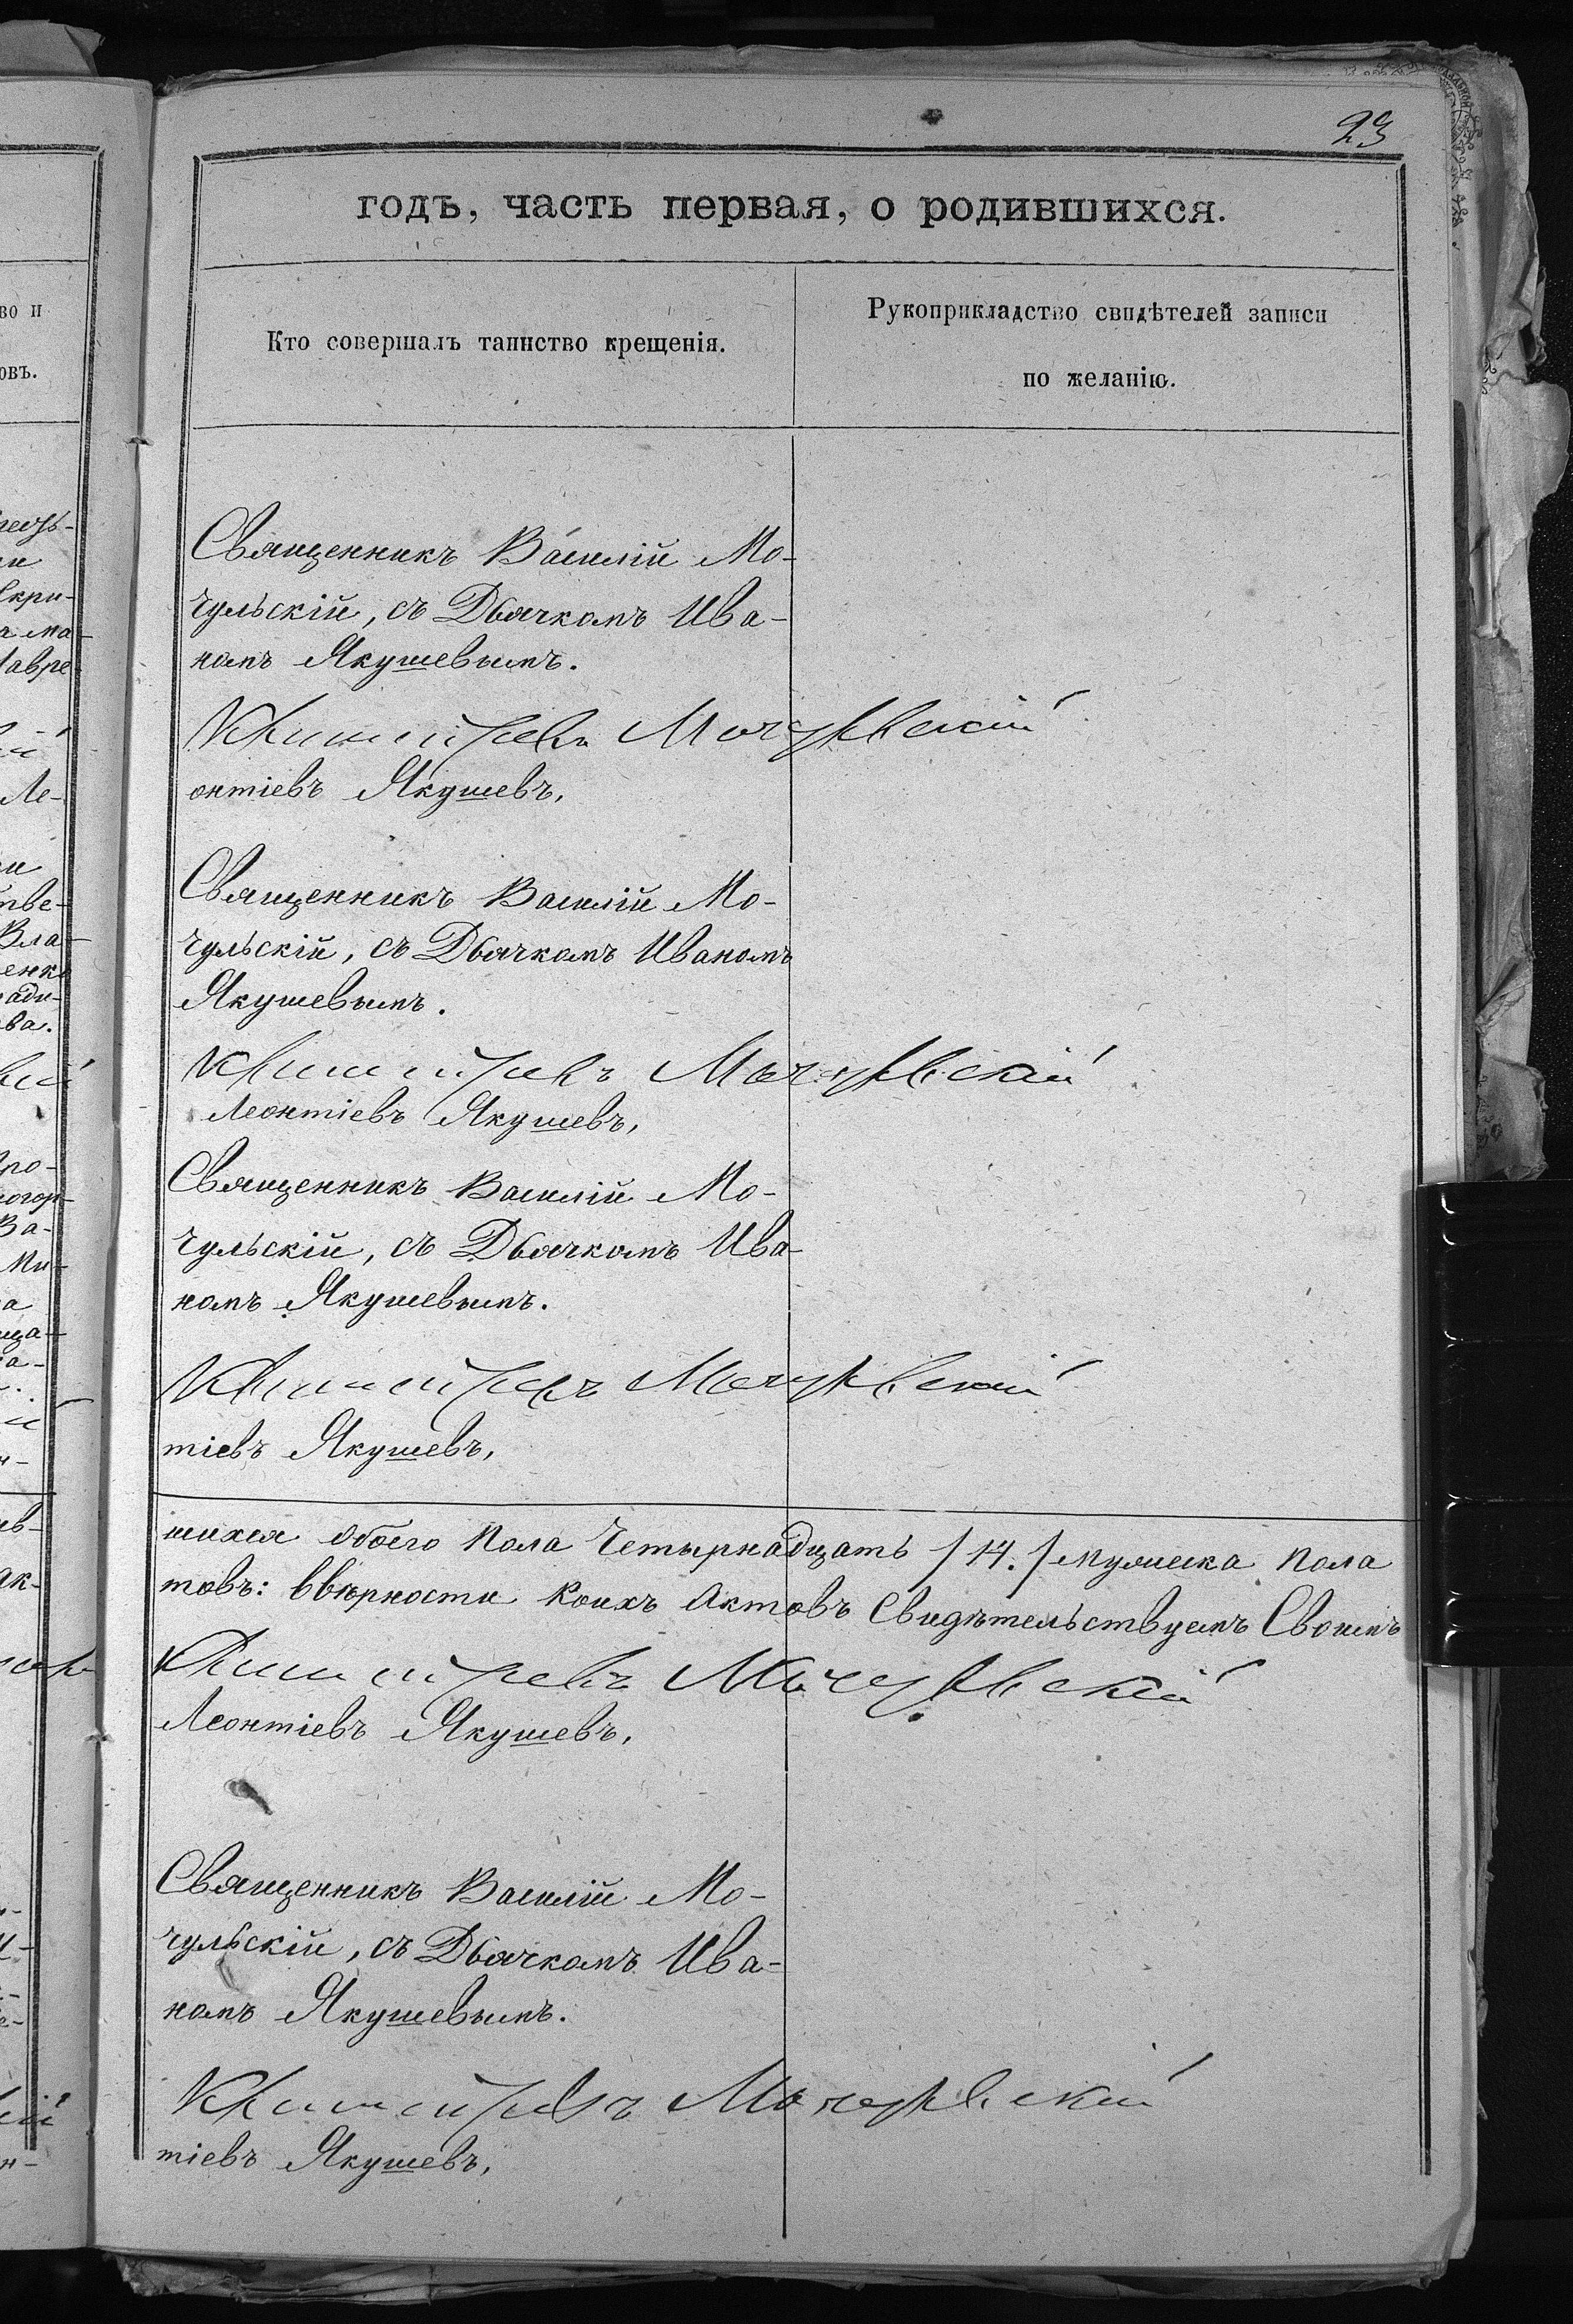 23
годъ, часть первая, о родившихся.
Кто совершалъ таинство крещенія.
Рукоприкладство свидѣтелей записи
по желанію.
Священникъ Василій Мо-
чульскій, съ Дьячкомъ Ива-
номъ Якушевымъ.
Мочульскій
онтіевъ Якушевъ,
Священникъ Василій Мо-
чульскій, съ Дьячкомъ Иваномъ
Якушевымъ.
Мочульскій
Леонтіевъ Якушевъ,
Священникъ Василій Мо-
чульскій, съ Дьячкомъ Ива-
номъ Якушевымъ.
Мочульскій
тіевъ Якушевъ,
шихся обоего пола четырнадцать /14./ мужеска пола
товъ: ввѣрности коихъ Актовъ Свидѣтельствуемъ Своимъ
Мочульскій
Леонтіевъ Якушевъ,
Священникъ Василій Мо-
чульскій, съ Дьячкомъ Ива-
номъ Якушевымъ.
Мочульскій
тіевъ Якушевъ,